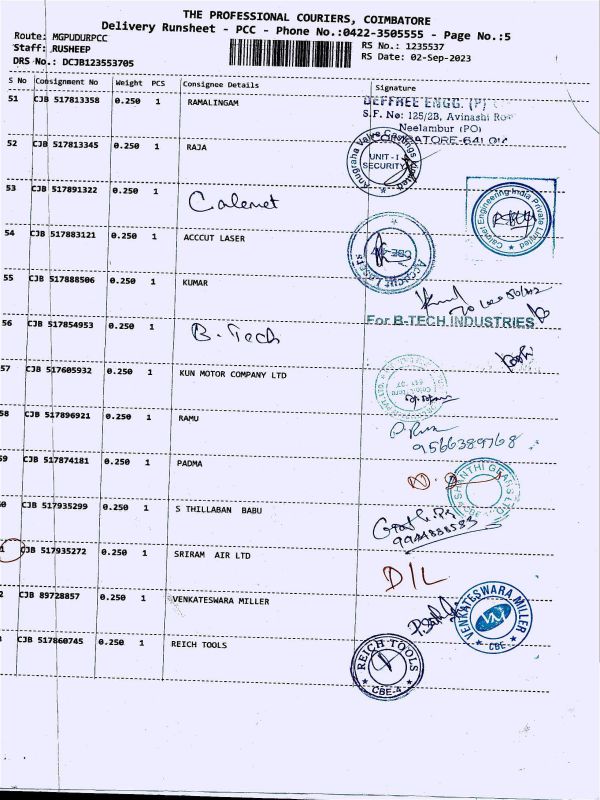 THE PROFESSIONAL COURIERS, COIMBATORE
Delivery Runsheet - PCC - Phone No.:0422-3505555 - Page No.:5
Route: MGPUDURPCC
RS No.: 1235537
Staff: RUSHEEP
RS Date: 02-Sep-2023
DRS No.: DCJB123553705
S No Consignment No Weight PCS Consignee Details Signature
51 CJB 517813358 0.250 1 RAMALINGAM
DEFFREE ENGG. (P)
S.F. No: 125/2B, Avinashi
Neelambur (PO)
52 CJB 517813345 0.250 1 RAJA
Anugraha Valve Castings Limited
UNIT-I
SECURITY
53 CJB 517891322 0.250 1
Engineering India Private Limited
54 CJB 517883121 0.250 1 ACCCUT LASER
Acccut Lasers
CBE
55 CJB 517888506 0.250 1 KUMAR
56 CJB 517854953 0.250 1 B. Tech
For B-TECH INDUSTRIES
57 CJB 517605932 0.250 1 KUN MOTOR COMPANY LTD
58 CJB 517896921 0.250 1 RAMU
9566389768
59 CJB 517874181 0.250 1 PADMA
SHANTHI GEARS LTD
CBE
0 CJB 517935299 0.250 1 S THILLABAN BABU
1 CJB 517935272 0.250 1 SRIRAM AIR LTD
D/L
2 CJB 89728857 0.250 1 VENKATESWARA MILLER
VENKATESWARA MILLER
CBE
CJB 517860745 0.250 1 REICH TOOLS
REICH TOOLS